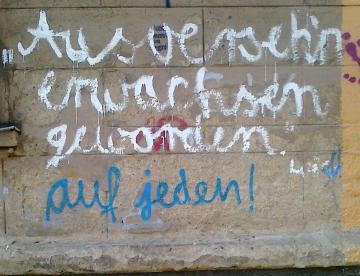 „Ausverseh'n
erwachsen
geworden."
auf jeden!